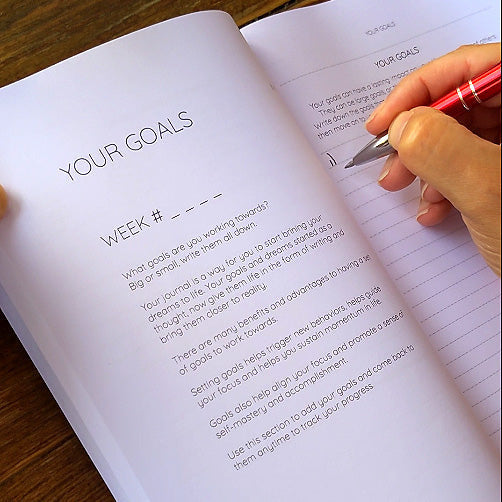 YOUR GOALS
WEEK # _ _ _ _
What goals are you working towards?
Big or small, write them all down.
Your journal is a way for you to start brining your
dreams to life. Your goals and dreams started as a
thought, now give them life in the form of writing and
bring them closer to reality.
There are many benefits and advantages to having a se
of goals to work towards.
Setting goals helps trigger new behaviors, helps guide
your focus and helps you sustain momentum in life.
Goals also help align your focus and promote a sense of
self-mastery and accomplishment.
Use this section to add your goals and come back to
them anytime to track your progress.
YOUR GOALS
YOUR GOALS
Your goals can have a lasting impact on
They can be large goals or
Write down the goals tha
then move on to